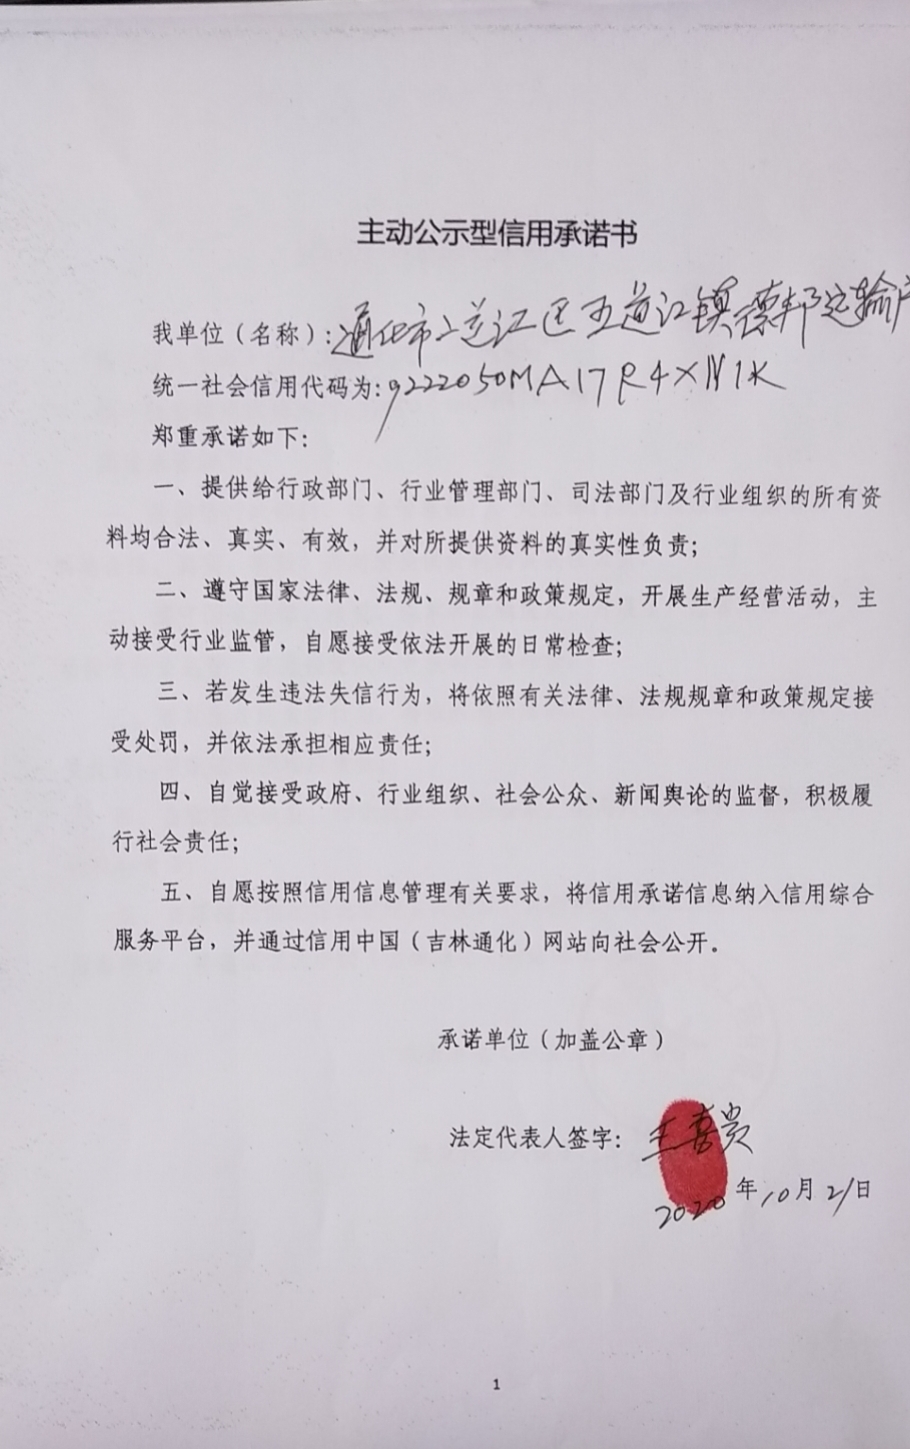 主动公示型信用承诺书
我单位（名称）：通化市二道江区五道江镇德邦运输户
统一社会信用代码为：9222050MA17R4XN1K
郑重承诺如下：
一、提供给行政部门、行业管理部门、司法部门及行业组织的所有资
料均合法、真实、有效，并对所提供资料的真实性负责；
二、遵守国家法律、法规、规章和政策规定，开展生产经营活动，主
动接受行业监管，自愿接受依法开展的日常检查；
三、若发生违法失信行为，将依照有关法律、法规规章和政策规定接
受处罚，并依法承担相应责任；
四、自觉接受政府、行业组织、社会公众、新闻舆论的监督，积极履
行社会责任；
五、自愿按照信用信息管理有关要求，将信用承诺信息纳入信用综合
服务平台，并通过信用中国（吉林通化）网站向社会公开。
承诺单位（加盖公章）
法定代表人签字：王喜贵
2020年10月21日
1